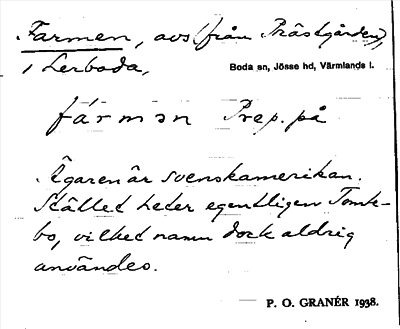 Farmen, avs. (från Prästgården),
i Lerboda,
Boda sn, Jösse hd, Värmlands l.
fármən Prep. på
Ägaren är svenskamerikan.
Stället heter egentligen Tomte-
bo, vilket namn dock aldrig
användes.
P. O. GRANÉR 1938.